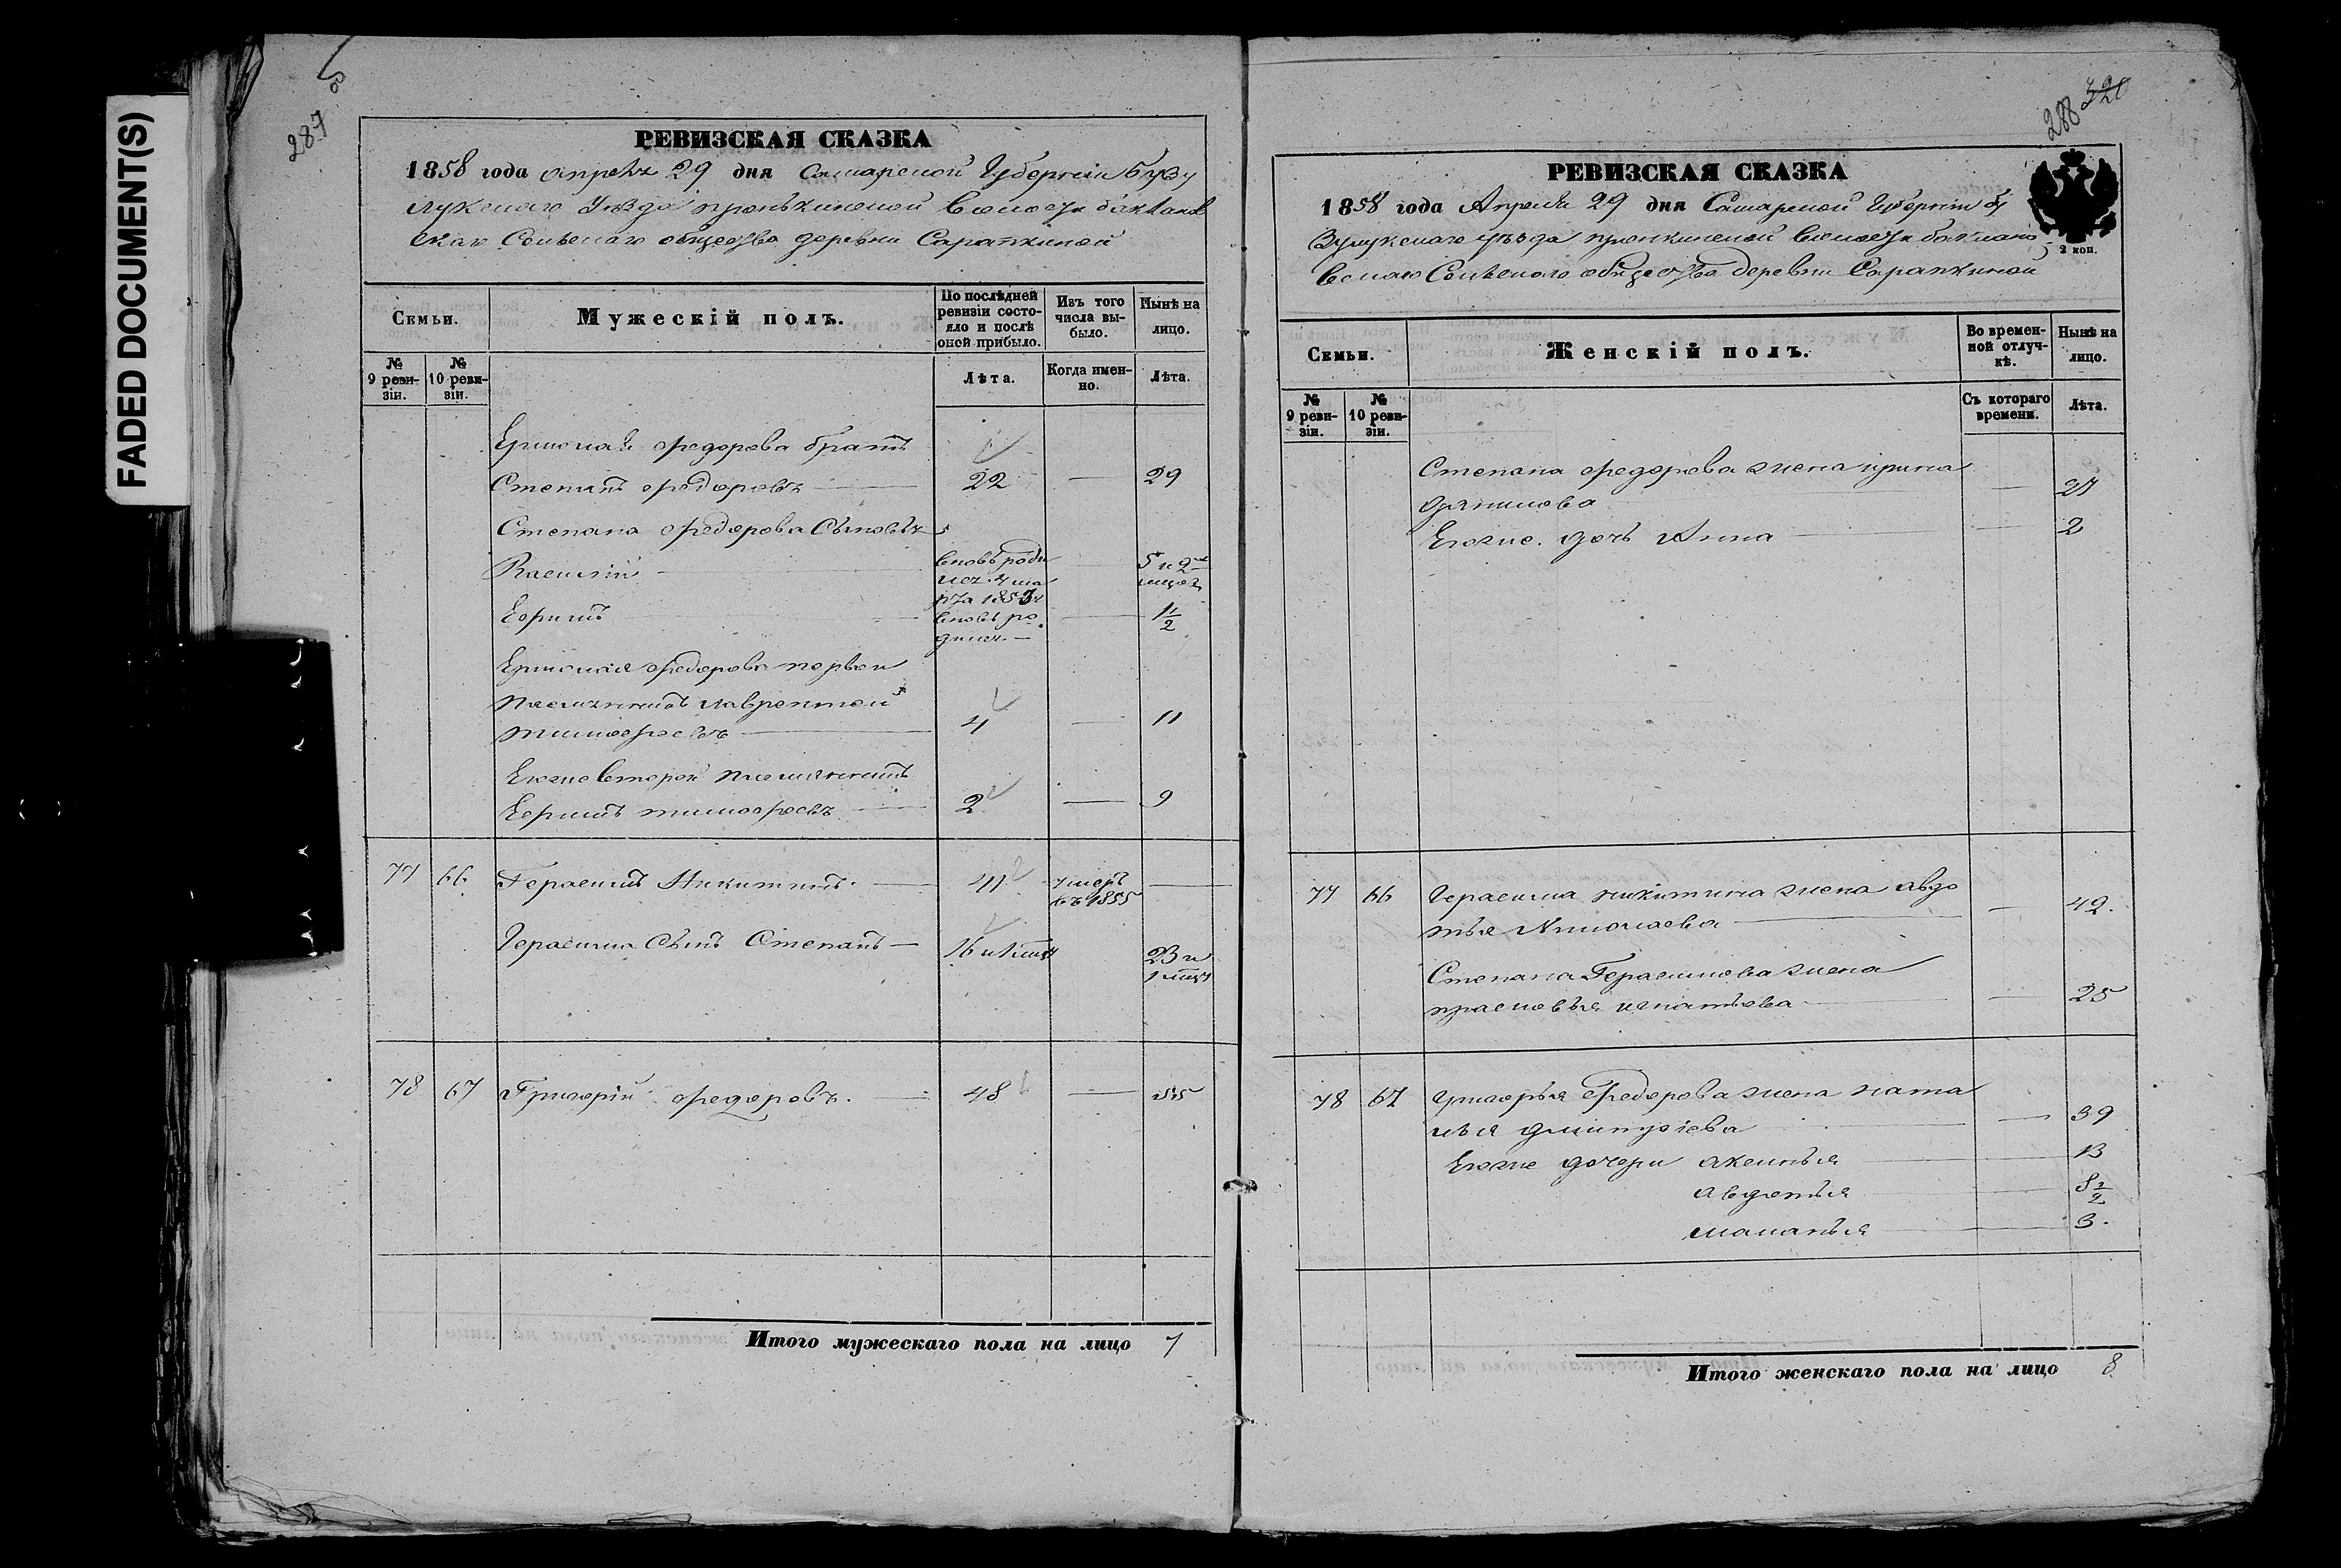 FADED DOCUMENT(S)
287
РЕВИЗСКАЯ СКАЗКА
1858 года апрелѧ 29 дня Самарской Губернiи Бузу
лукскаго Уѣзда пронькинской волости баклано
скаго Сельскаго общества деревни Сарапкиной
Семьи.
Мужескій полъ.
По послѣдней ревизіи состояло и послѣ оной прибыло.
Изъ того числа выбыло.
Нынѣ на лицо.
№ 9 ревизіи.
№ 10 ревизіи.
Лѣта.
Когда именно.
Лѣта.
Ермолая федорова братъ
Степанъ федоровъ 22 — 29
Степана федорова Сыновья
Василій вновь роди
лся 4 ма
рта 1853 — 5 и 2
Ефимъ вновь ро
дился — 1 1/2
Ермолая федорова первой
племянникъ лаврентей
тимофеевъ 4 — 11
Егоже второй племянникъ
Ефимъ тимофеевъ 2 — 9
77 66 Герасимъ Никитинъ 41 умеръ
въ 1855 —
Герасима сынъ Степанъ — 16 и 1 мцъ 23 и
1 мцъ
78 67 Григорій федоровъ. 48 — 55
Итого мужескаго пола на лицо 7
288 320
РЕВИЗСКАЯ СКАЗКА
1858 года Апреля 29 дня Самарской Губерніи бу
зулукскаго уѣзда пронкинской волости баклано
вскаго Сельскаго общества деревни Сарапкиной
2 коп.
Семьи.
Женскій полъ.
Во временной отлучкѣ.
Нынѣ на лицо.
№ 9 ревизіи.
№ 10 ревизіи.
Съ котораго времени.
Лѣта.
Степана федорова жена ирина
данилова — 27
Егоже дочь Анна — 2
77 66 Герасима никитина жена авдо
тья Николаева — 42.
Степана Герасимова жена
прасковья игнатьева — 25
78 67 Григорья Федорова жена ната
лья дмитріева — 39
Егоже дочери аксинья 13
авдотья 8 1/2
маланья 3.
Итого женскаго пола на лицо 8